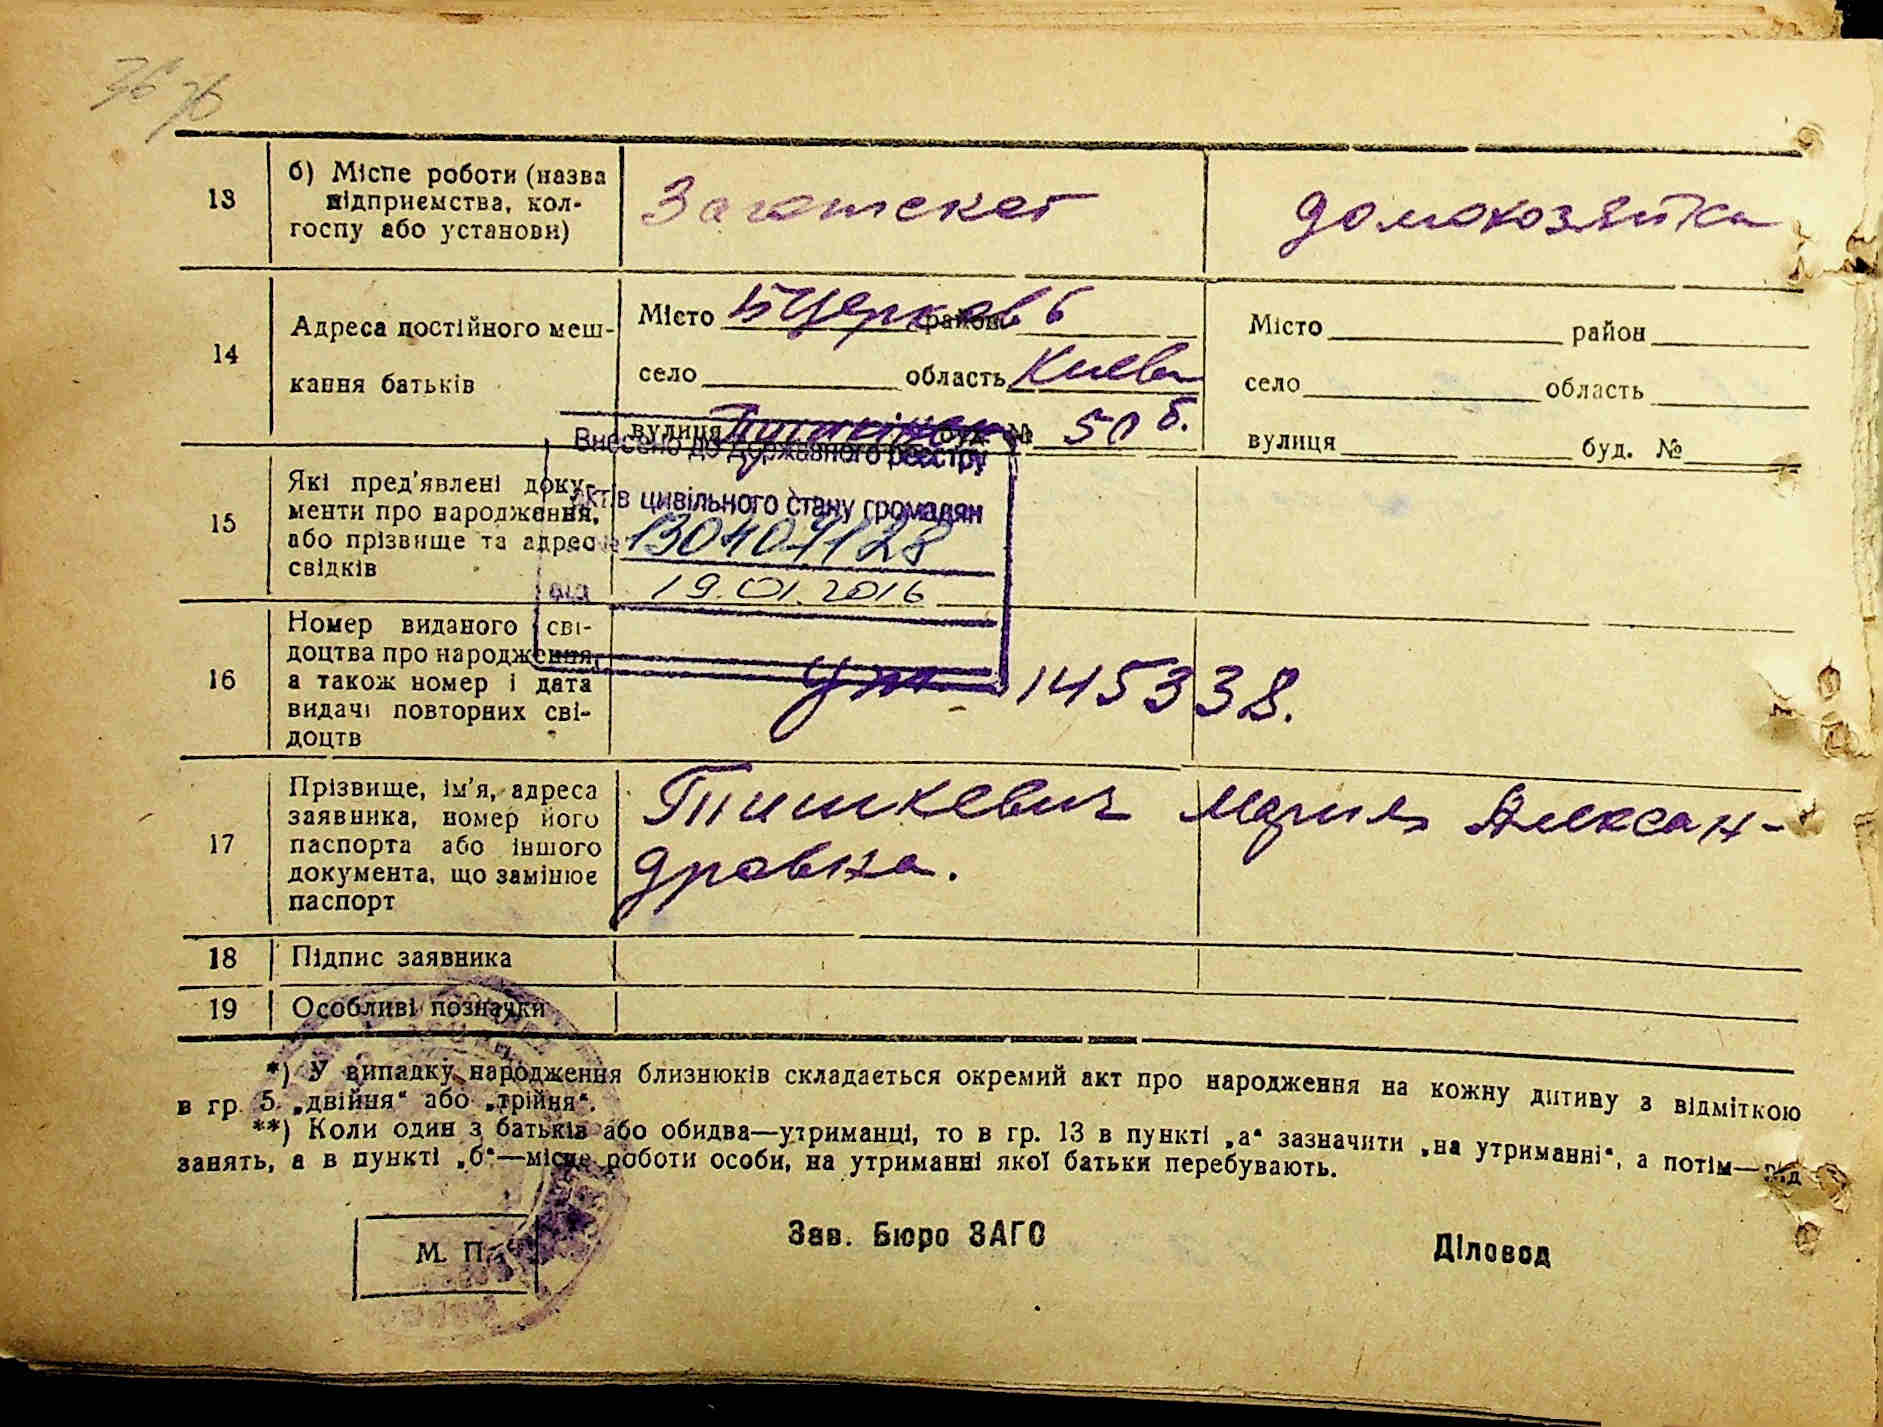 13
б) Місце роботи (назва
підприємства, кол-
госпу або установи)
Заготскот
домохозяйка
14
Адреса постійного меш-
кання батьків
Місто БЦерковь район
село область Киевск
вулиця буд. № 50 б.
Місто район
село область
вулиця буд. №
Внесено до Державного реєстру
актів цивільного стану громадян
від 19.01.2016
15
Які пред'явлені доку-
менти про народження,
або прізвище та адрес
свідків
16
Номер виданого сві-
доцтва про народження,
а також номер і дата
видачі повторних сві-
доцтв
145338.
17
Прізвище, ім'я, адреса
заявника, номер його
паспорта або іншого
документа, що замінює
паспорт
Тишкевич Мария Алексан-
дровна.
18
Підпис заявника
19
Особливі позначки
*) У випадку народження близнюків складається окремий акт про народження на кожну дитину з відміткою
в гр. 5 „двійня“ або „трійня“.
**) Коли один з батьків або обидва—утриманці, то в гр. 13 в пункті „а“ зазначити „на утриманні“, а потім—рід
занять, а в пункті „б“—місце роботи особи, на утриманні якої батьки перебувають.
М. П.
Зав. Бюро ЗАГС
Діловод